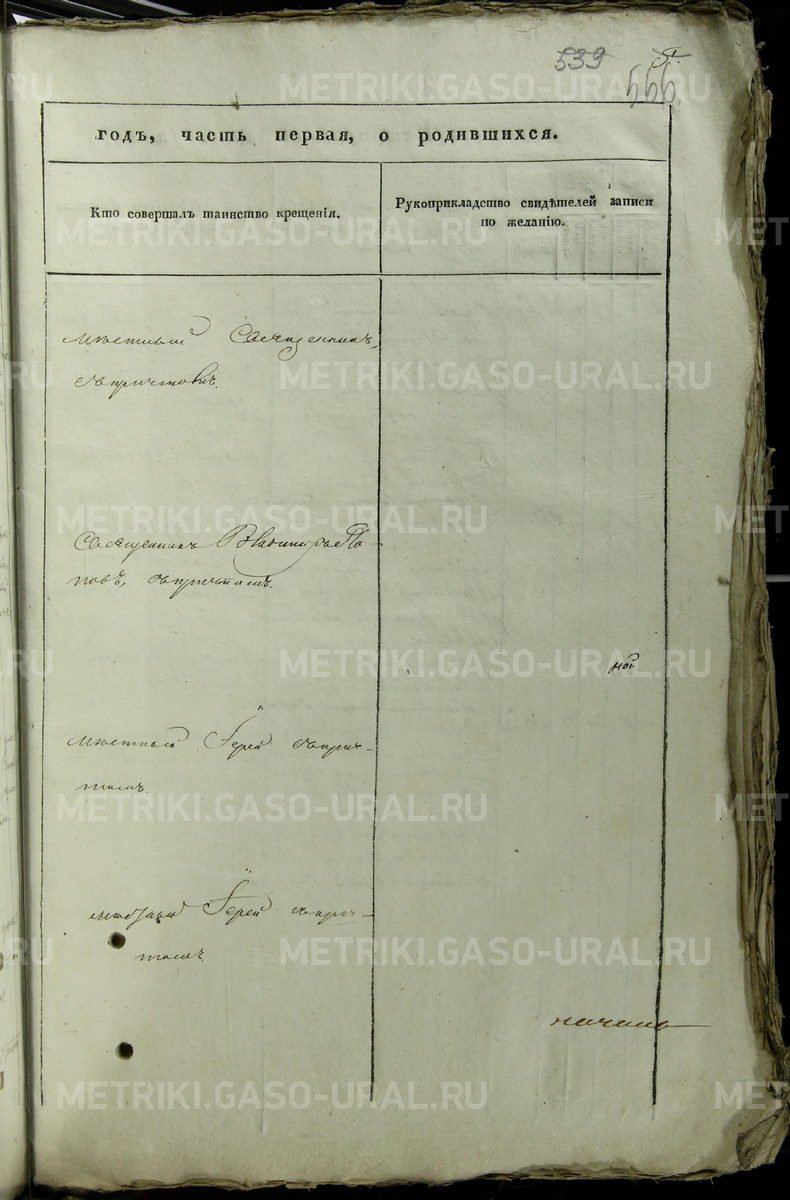 539
566
годъ, часть первая, о родившихся.
Кто совершалъ таинство крещенія.
Рукоприкладство свидѣтелей записи
по желанію.
мѣстный Священникъ
съ причтомъ.
Священникъ Владиміръ По-
повъ, съ причтомъ.
ной
мѣстный Іерей съ прич-
томъ.
Іерей съ прич-
томъ.
METRIKI.GASO-URAL.RU